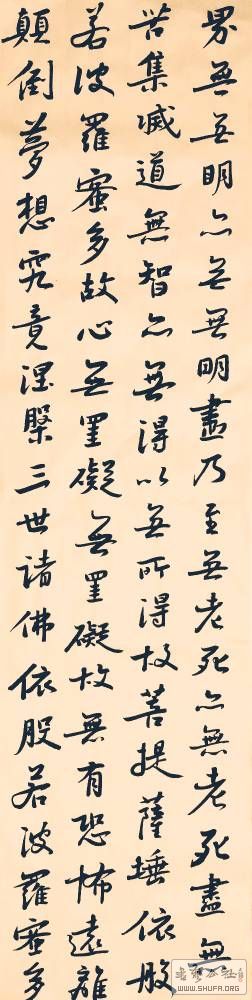 界無無明亦無無明盡乃至無老死亦無老死盡無
苦集滅道無智亦無得以無所得故菩提薩埵依般
若波羅蜜多故心無罣礙無罣礙故無有恐怖遠離
顛倒夢想究竟涅槃三世諸佛依般若波羅蜜多
WWW.SHUFA.ORG